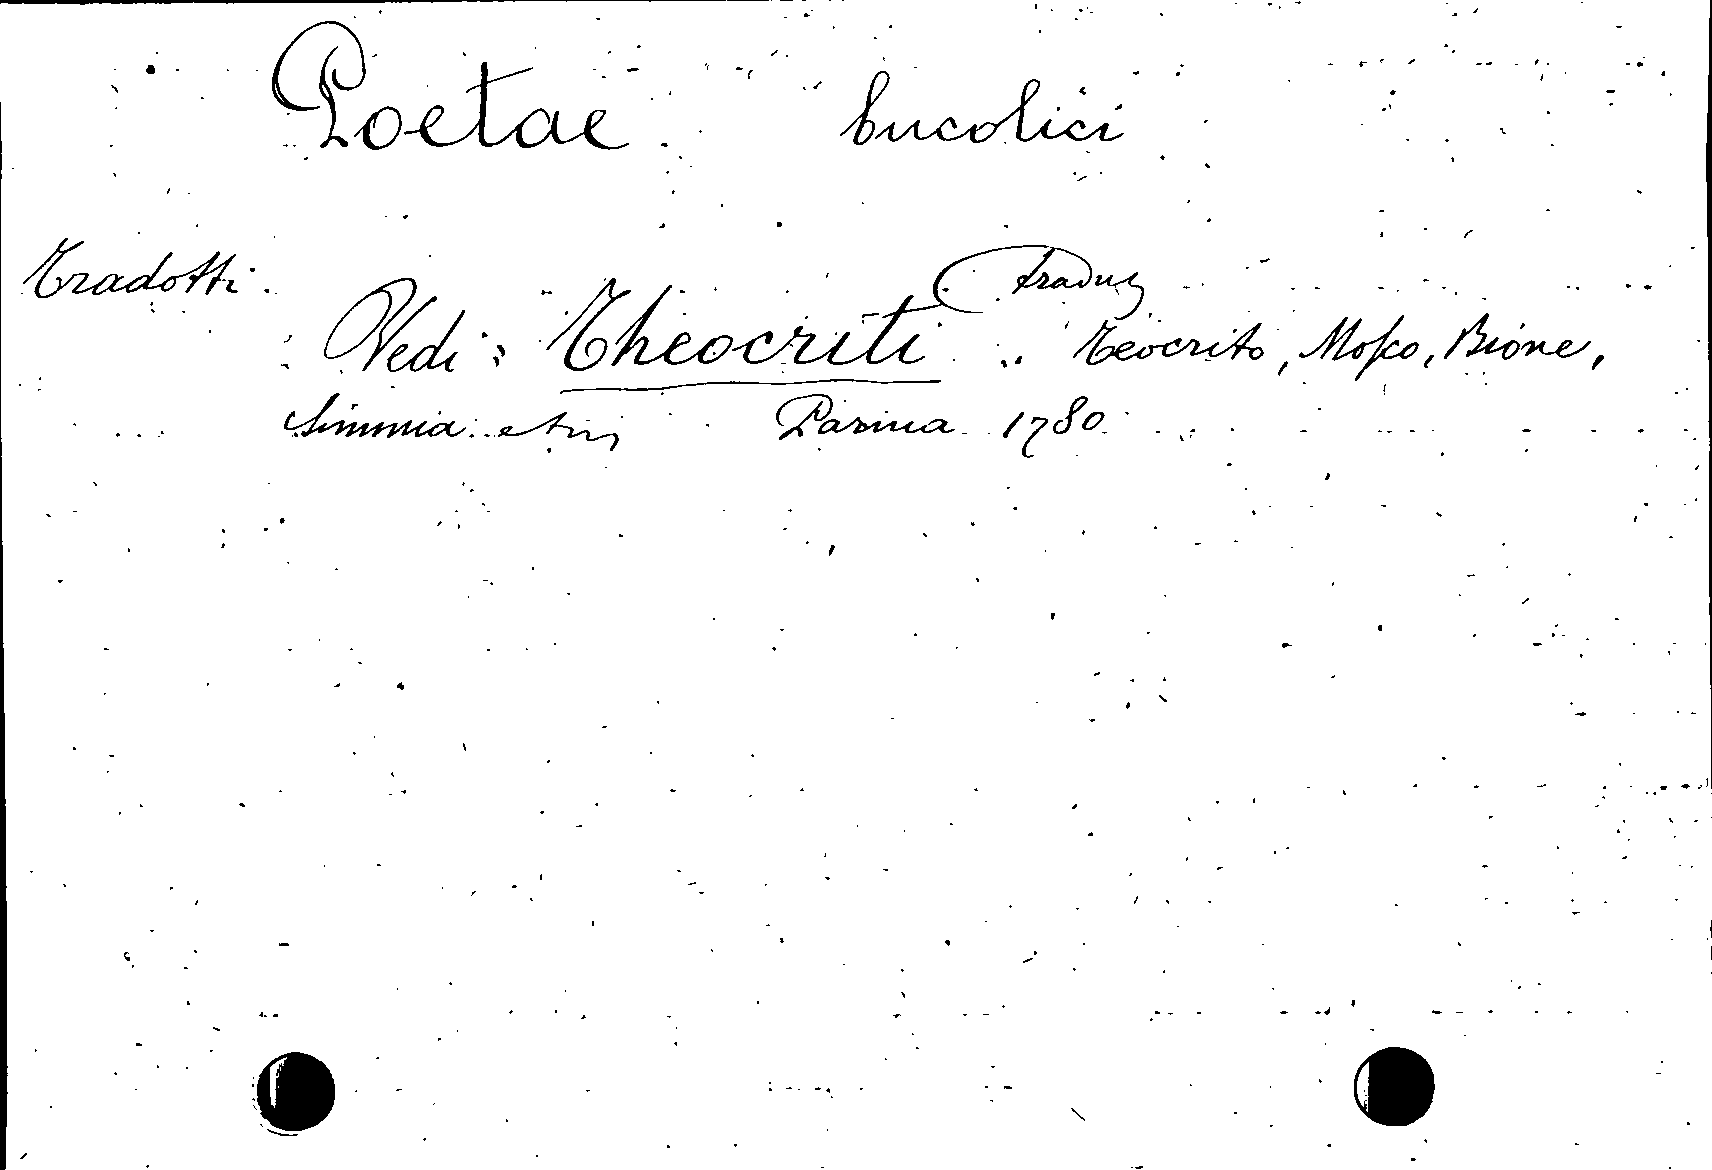 Poetae bucolici
Tradotti.
Traduz
Vedi: Theocriti .. Teocrito, Mosco, Bione,
Simmia Parma 1780